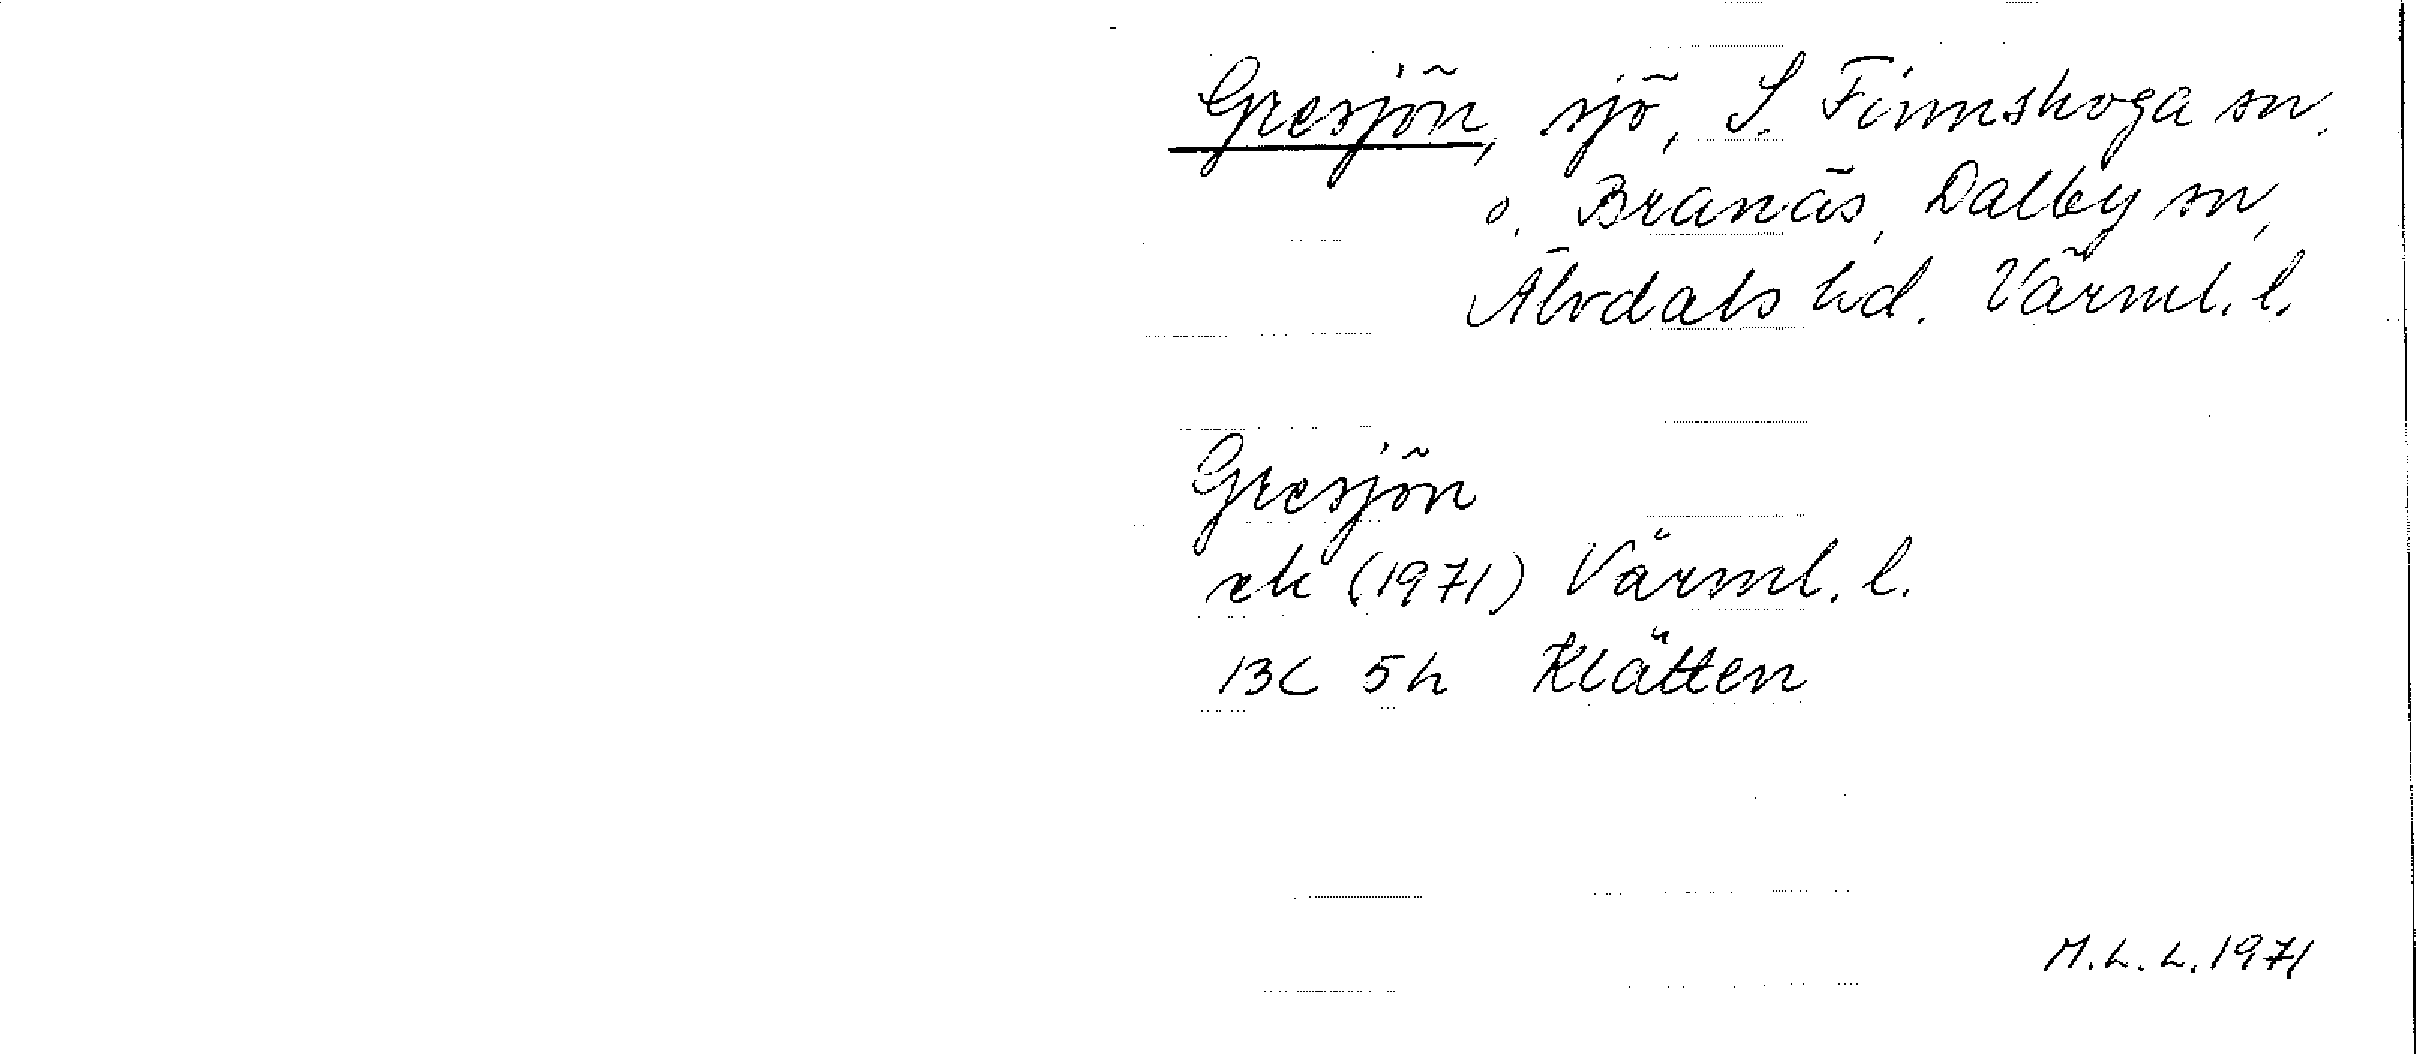 Gresjön, sjö, S. Finnskoga sn.
o. Branäs, Dalby sn,
Älvdals hd. Värml. l.
Gresjön
ek (1971) Värml. l.
13C 5h Klätten
M.L.L. 1971